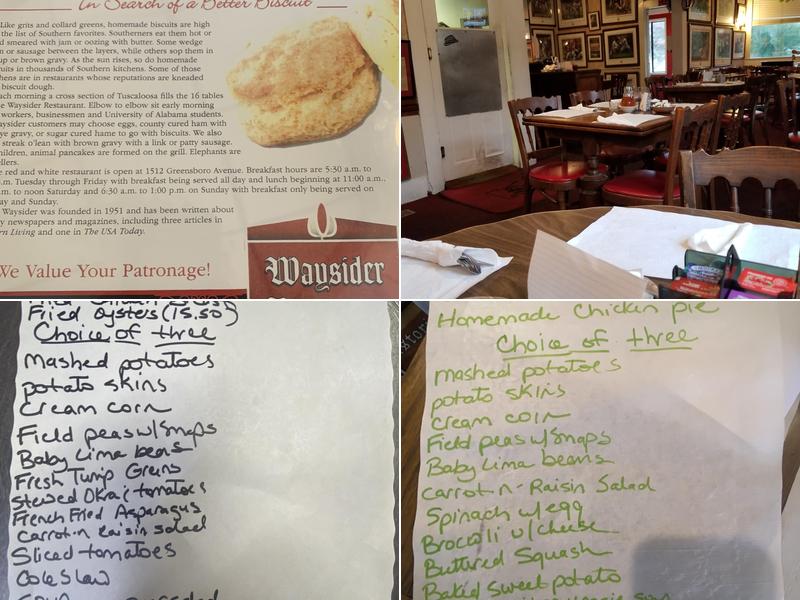 In Search of a Better Biscuit
Like grits and collard greens, homemade biscuits are high
the list of Southern favorites. Southerners eat them hot or
d smeared with jam or oozing with butter. Some wedge
n or sausage between the layers, while others sop them in
up or brown gravy. As the sun rises, so do homemade
uits in thousands of Southern kitchens. Some of those
hens are in restaurants whose reputations are kneaded
biscuit dough.
ach morning a cross section of Tuscaloosa fills the 16 tables
e Waysider Restaurant. Elbow to elbow sit early morning
workers, businessmen and University of Alabama students.
aysider customers may choose eggs, county cured ham with
ye gravy, or sugar cured hame to go with biscuits. We also
streak o'lean with brown gravy with a link or patty sausage.
hildren, animal pancakes are formed on the grill. Elephants are
llers.
e red and white restaurant is open at 1512 Greensboro Avenue. Breakfast hours are 5:30 a.m. to
.m. Tuesday through Friday with breakfast being served all day and lunch beginning at 11:00 a.m.,
.m. to noon Saturday and 6:30 a.m. to 1:00 p.m. on Sunday with breakfast only being served on
ay and Sunday.
Waysider was founded in 1951 and has been written about
y newspapers and magazines, including three articles in
rn Living and one in The USA Today.
We Value Your Patronage!
Waysider
Fried oysters (15.50)
Choice of three
Mashed potatoes
potato skins
Cream corn
Field peas w/Snaps
Baby Lima beans
Fresh Turnip Greens
Stewed Okra & tomatoes
French Fried Asparagus
Carrot-n Raisin Salad
Sliced tomatoes
Coleslaw
Homemade Chicken Pie
Choice of three
mashed potatoes
potato skins
cream corn
Field peas w/Snaps
Baby Lima beans
carrot-n-Raisin Salad
Spinach w/egg
Broccoli w/cheese
Buttered Squash
Baked sweet potato